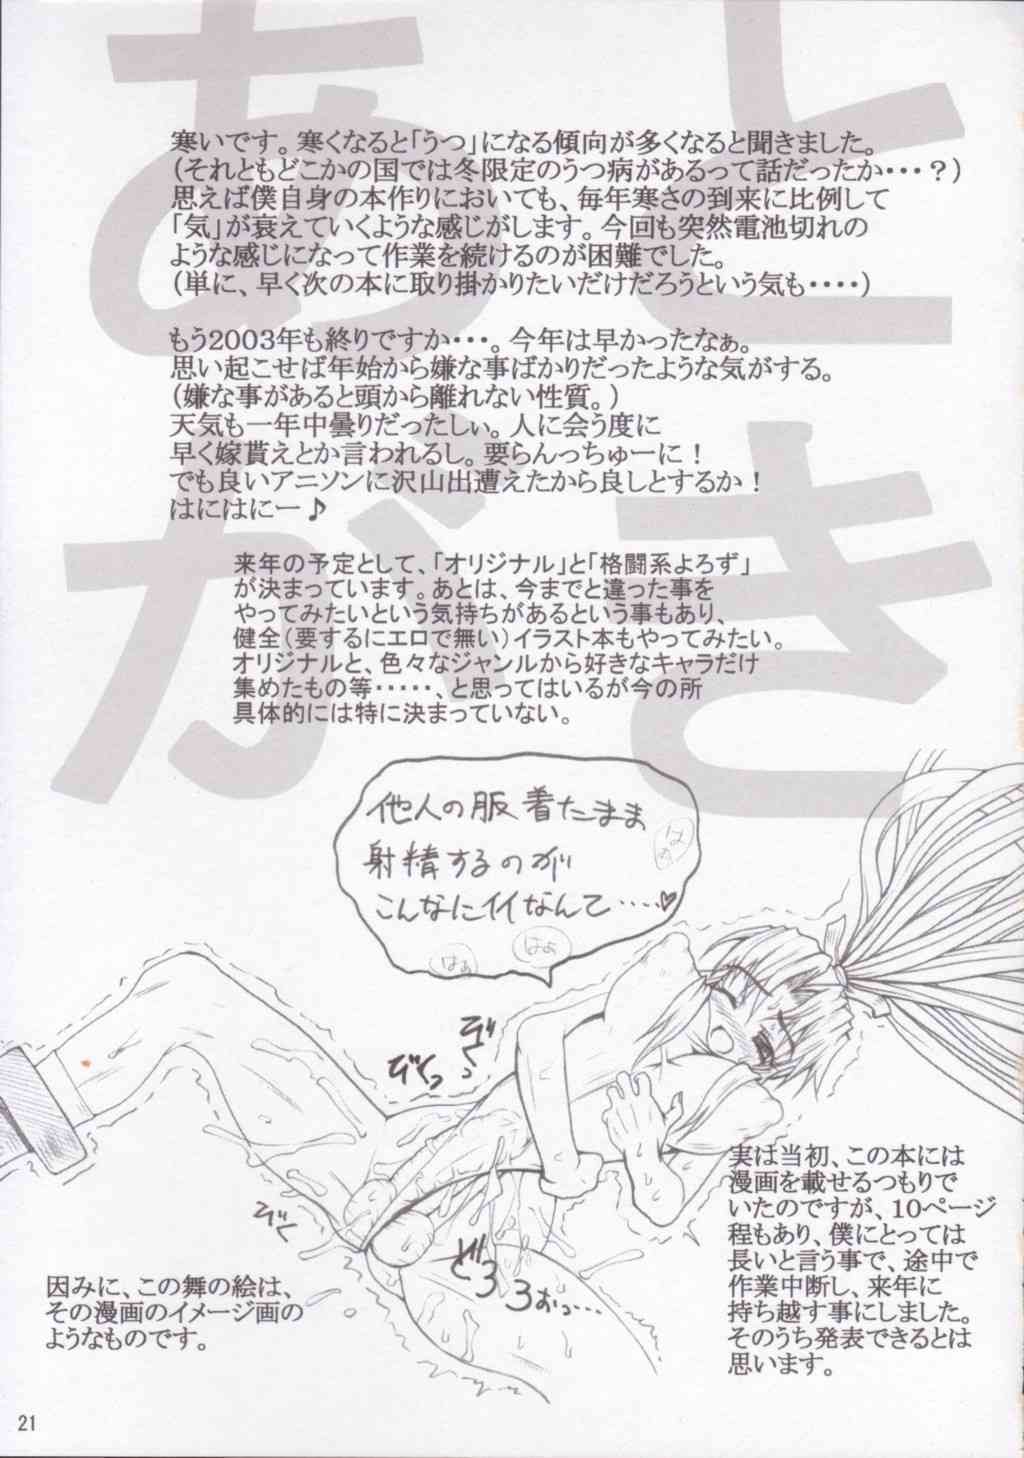 あとがき
寒いです。寒くなると「うつ」になる傾向が多くなると聞きました。
(それともどこかの国では冬限定のうつ病があるって話だったか・・・？)
思えば僕自身の本作りにおいても、毎年寒さの到来に比例して
「気」が衰えていくような感じがします。今回も突然電池切れの
ような感じになって作業を続けるのが困難でした。
(単に、早く次の本に取り掛かりたいだけだろうという気も・・・・)
もう2003年も終りですか・・・。今年は早かったなぁ。
思い起こせば年始から嫌な事ばかりだったような気がする。
(嫌な事があると頭から離れない性質。)
天気も一年中曇りだったしぃ。人に会う度に
早く嫁貰えとか言われるし。要らんっちゅーに！
でも良いアニソンに沢山出遭えたから良しとするか！
はにはにー♪
来年の予定として、「オリジナル」と「格闘系よろず」
が決まっています。あとは、今までと違った事を
やってみたいという気持ちがあるという事もあり、
健全(要するにエロで無い)イラスト本もやってみたい。
オリジナルと、色々なジャンルから好きなキャラだけ
集めたもの等・・・・・、と思ってはいるが今の所
具体的には特に決まっていない。
他人の服着たまま
射精するのが
こんなにイイなんて……♡
はぁ
はぁ
はぁ
ぞくっ
ぞくっ
ぞく
どろろぉっ…
実は当初、この本には
漫画を載せるつもりで
いたのですが、10ページ
程もあり、僕にとっては
長いと言う事で、途中で
作業中断し、来年に
持ち越す事にしました。
そのうち発表できるとは
思います。
因みに、この舞の絵は、
その漫画のイメージ画の
ようなものです。
21